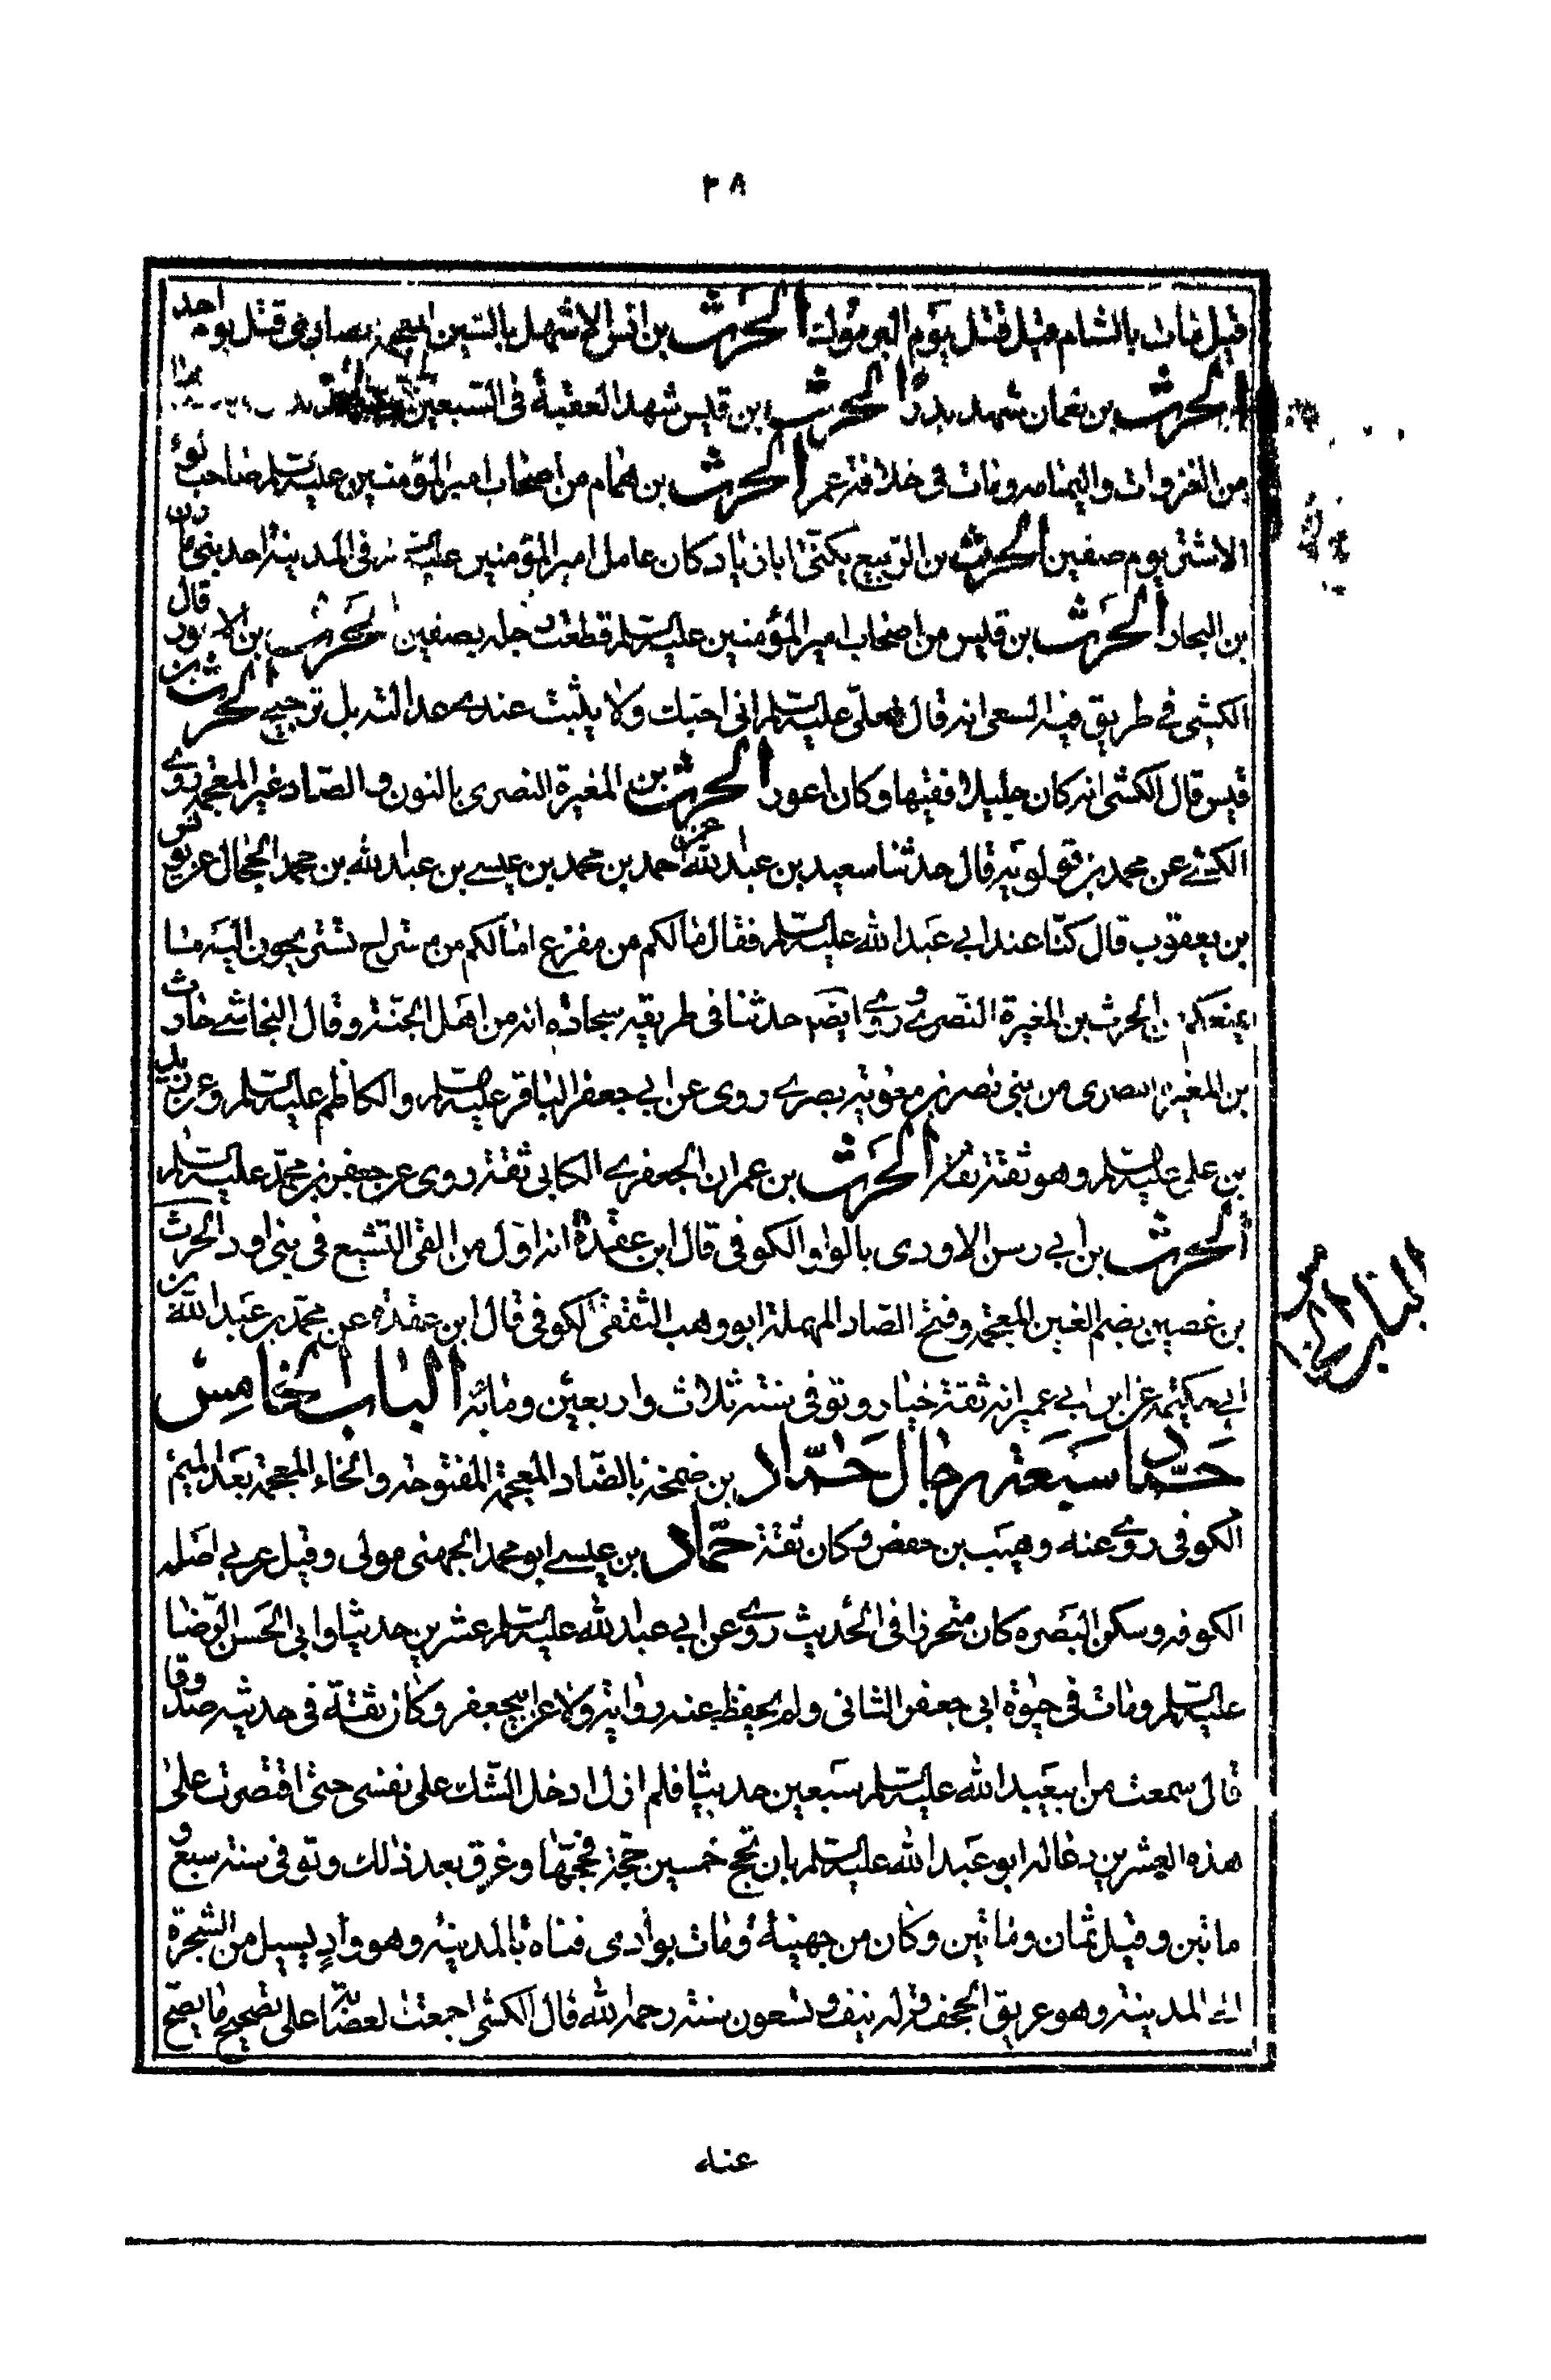 ٢٨
قبل مات بالشام قبل قتل يوم مؤتة الحرث بن انس الاشهل بالشين المعجمة انصارى قتل يوم احد
الحرث بن نعمان شهد بدرا الحرث بن قيس شهد العقبة فى السبعين
من الغزوات واليمامه ومات فى خلافة عمر الحرث بن همام من اصحاب امير المؤمنين عليه السلم صاحب لوٓاء
الاشتر يوم صفين الحرث بن الربيع يكنى ابا زياد كان عامل امير المؤمنين عليه السلم على المدينة احد بنى مازن
بن النجار الحرث بن قيس من اصحاب امير المؤمنين عليه السلم قطعت رجله بصفين الحرث بن الاعور قال
الكشى فى طريق فيه الشعبى انه قال لعلى عليه السلم انى احبك ولا يثبت عندى بهذا عدالته بل ترجيح الحرث بن
قيس قال الكشى انه كان جليلا فقيها وكان اعور الحرث بن المغيرة النصرى بالنون والصاد غير المعجمة روى
الكشى عن محمد بن قولويه قال حدثنا سعيد بن عبد الله عن احمد بن محمد بن عيسى عن عبد الله بن محمد الحجال عن يونس
بن يعقوب قال كنا عند ابى عبد الله عليه السلم فقال مالكم من مفزع امالكم من مستراح تستريحون اليه ما
يمنعكم من الحرث بن المغيرة النصرى وروى ايضا حدثنا فى طريقه سجادة انه من اهل الجنة وقال النجاشى حارث
بن المغيرة النصرى من بنى نصر بن معوية بصرى روى عن ابى جعفر الباقر عليه السلم والكاظم عليه السلم وعن زيد
بن على عليه السلم وهو ثقة ثقة الحرث بن عمران الجعفرى الكلابى ثقة روى عن جعفر بن محمد عليه السلم
الحرث بن ابى رسن الاودى بالواو الكوفى قال ابن عقدة انه اول من القى التشيع فى بنى اود الحرث
بن غصين بضم الغين المعجمة وفتح الصاد المهملة ابو وهب الثقفى الكوفى قال ابن عقدة عن محمد بن عبد الله بن
ابى حكيمة عن ابن ابى عمير انه ثقة خيار وتوفى سنة ثلاث واربعين ومائة الباب الخامس
حماد سبعة رجال حماد بن ضمخة بالضاد المعجمة المفتوحة والخاء المعجمة بعد الميم
الكوفى روى عنه وهيب بن حفص وكان ثقة حماد بن عيسى ابو محمد الجهنى مولى وقيل عربى اصله
الكوفه وسكن البصره كان متحرزا فى الحديث روى عن ابى عبد الله عليه السلم عشرين حديثا وابى الحسن الرضا
عليه السلم ومات فى حيوة ابى جعفر الثانى ولم يحفظ عنه رواية ولا عن ابيجعفر وكان ثقة فى حديثه صدوقا
قال سمعت من ابيعبد الله عليه السلم سبعين حديثا فلم ازل ادخل الشك على نفسى حتى اقتصرت على
هذه العشرين دعا له ابو عبد الله عليه السلم بان تحج خمسين حجة فحجها وغرق بعد ذلك وتوفى سنة سبع و
ماتين وقيل ثمان وماتين وكان من جهينة ومات بوادى قناة بالمدينة وهو واد يسيل من الشجرة
الى المدينة وهو غريق الجحفة وله نيف وتسعون سنة رحمه الله قال الكشى اجمعت العصابة على تصحيح ما يصح
عنه